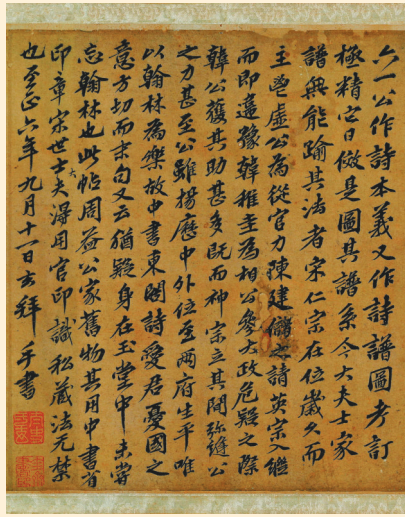 六一公作詩本義又作詩譜圖考訂
極精它日倣是圖其譜系今大夫士家
譜無能踰其法者宋仁宗在位歲久而
主鬯虛公為從官力陳建儲之請英宗入繼
而即違豫韓推圭為相公參大政危疑之際
韓公獲其助甚多既而神宗立其間弥縫公
之力甚至公雖揚歷中外位至兩府生平唯
以翰林為樂故中書東閣詩愛君憂國之
意方切而末句又云猶疑身在玉堂中未嘗
忘翰林也此帖周益公家舊物其用中書省
印章宋世士大夫得用官印識私藏法无禁
也至正六年九月十一日玄拜手書